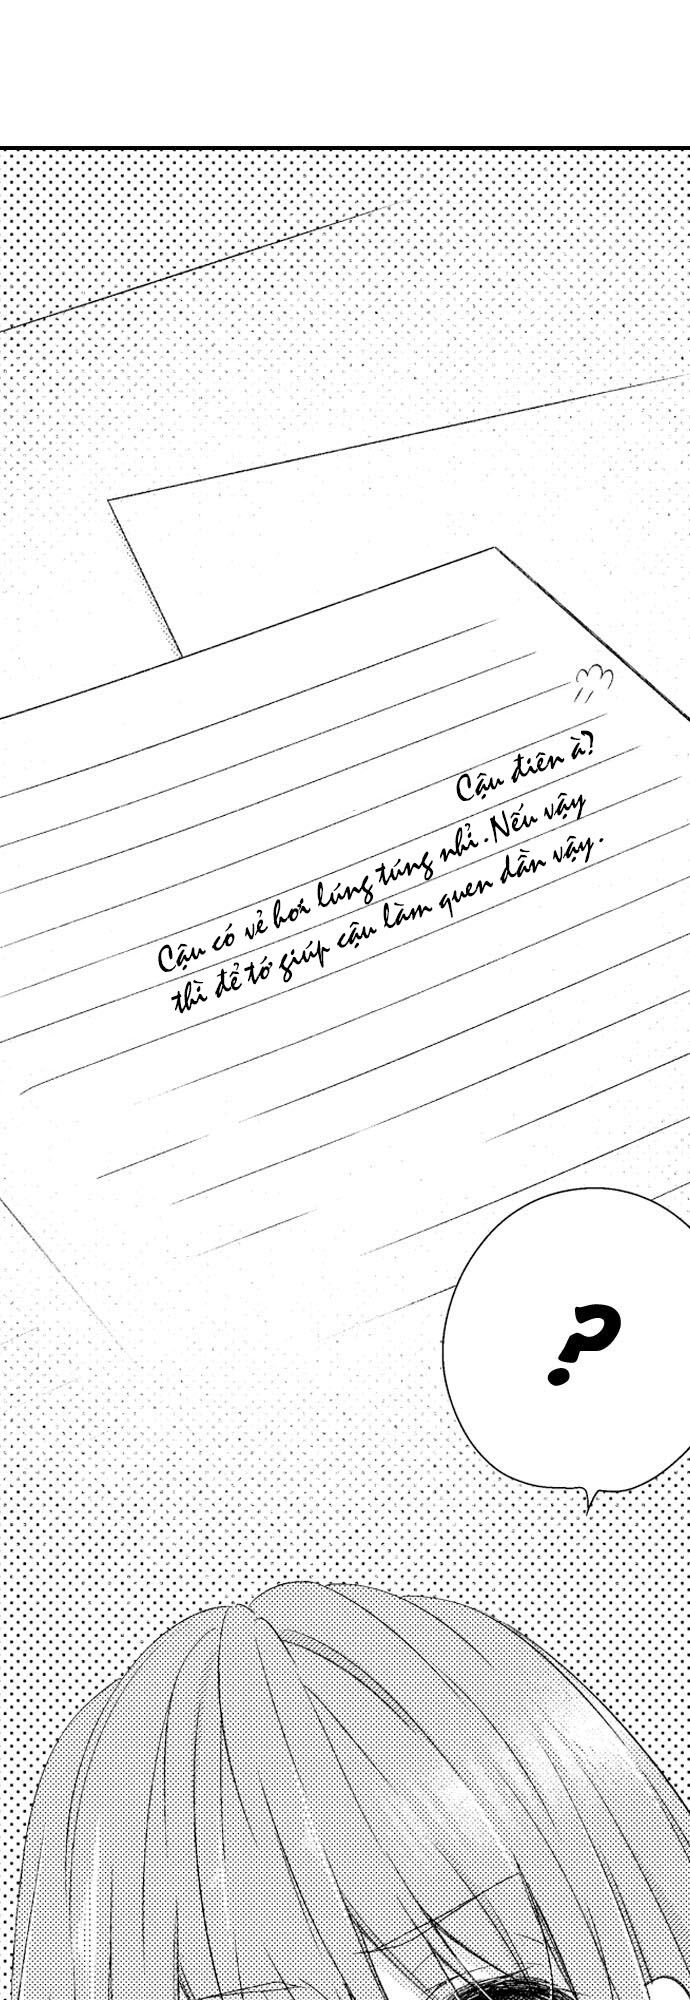 Cậu điên à?
Cậu có vẻ hơi lúng túng nhỉ. Nếu vậy
thì để tớ giúp cậu làm quen dần vậy.
?